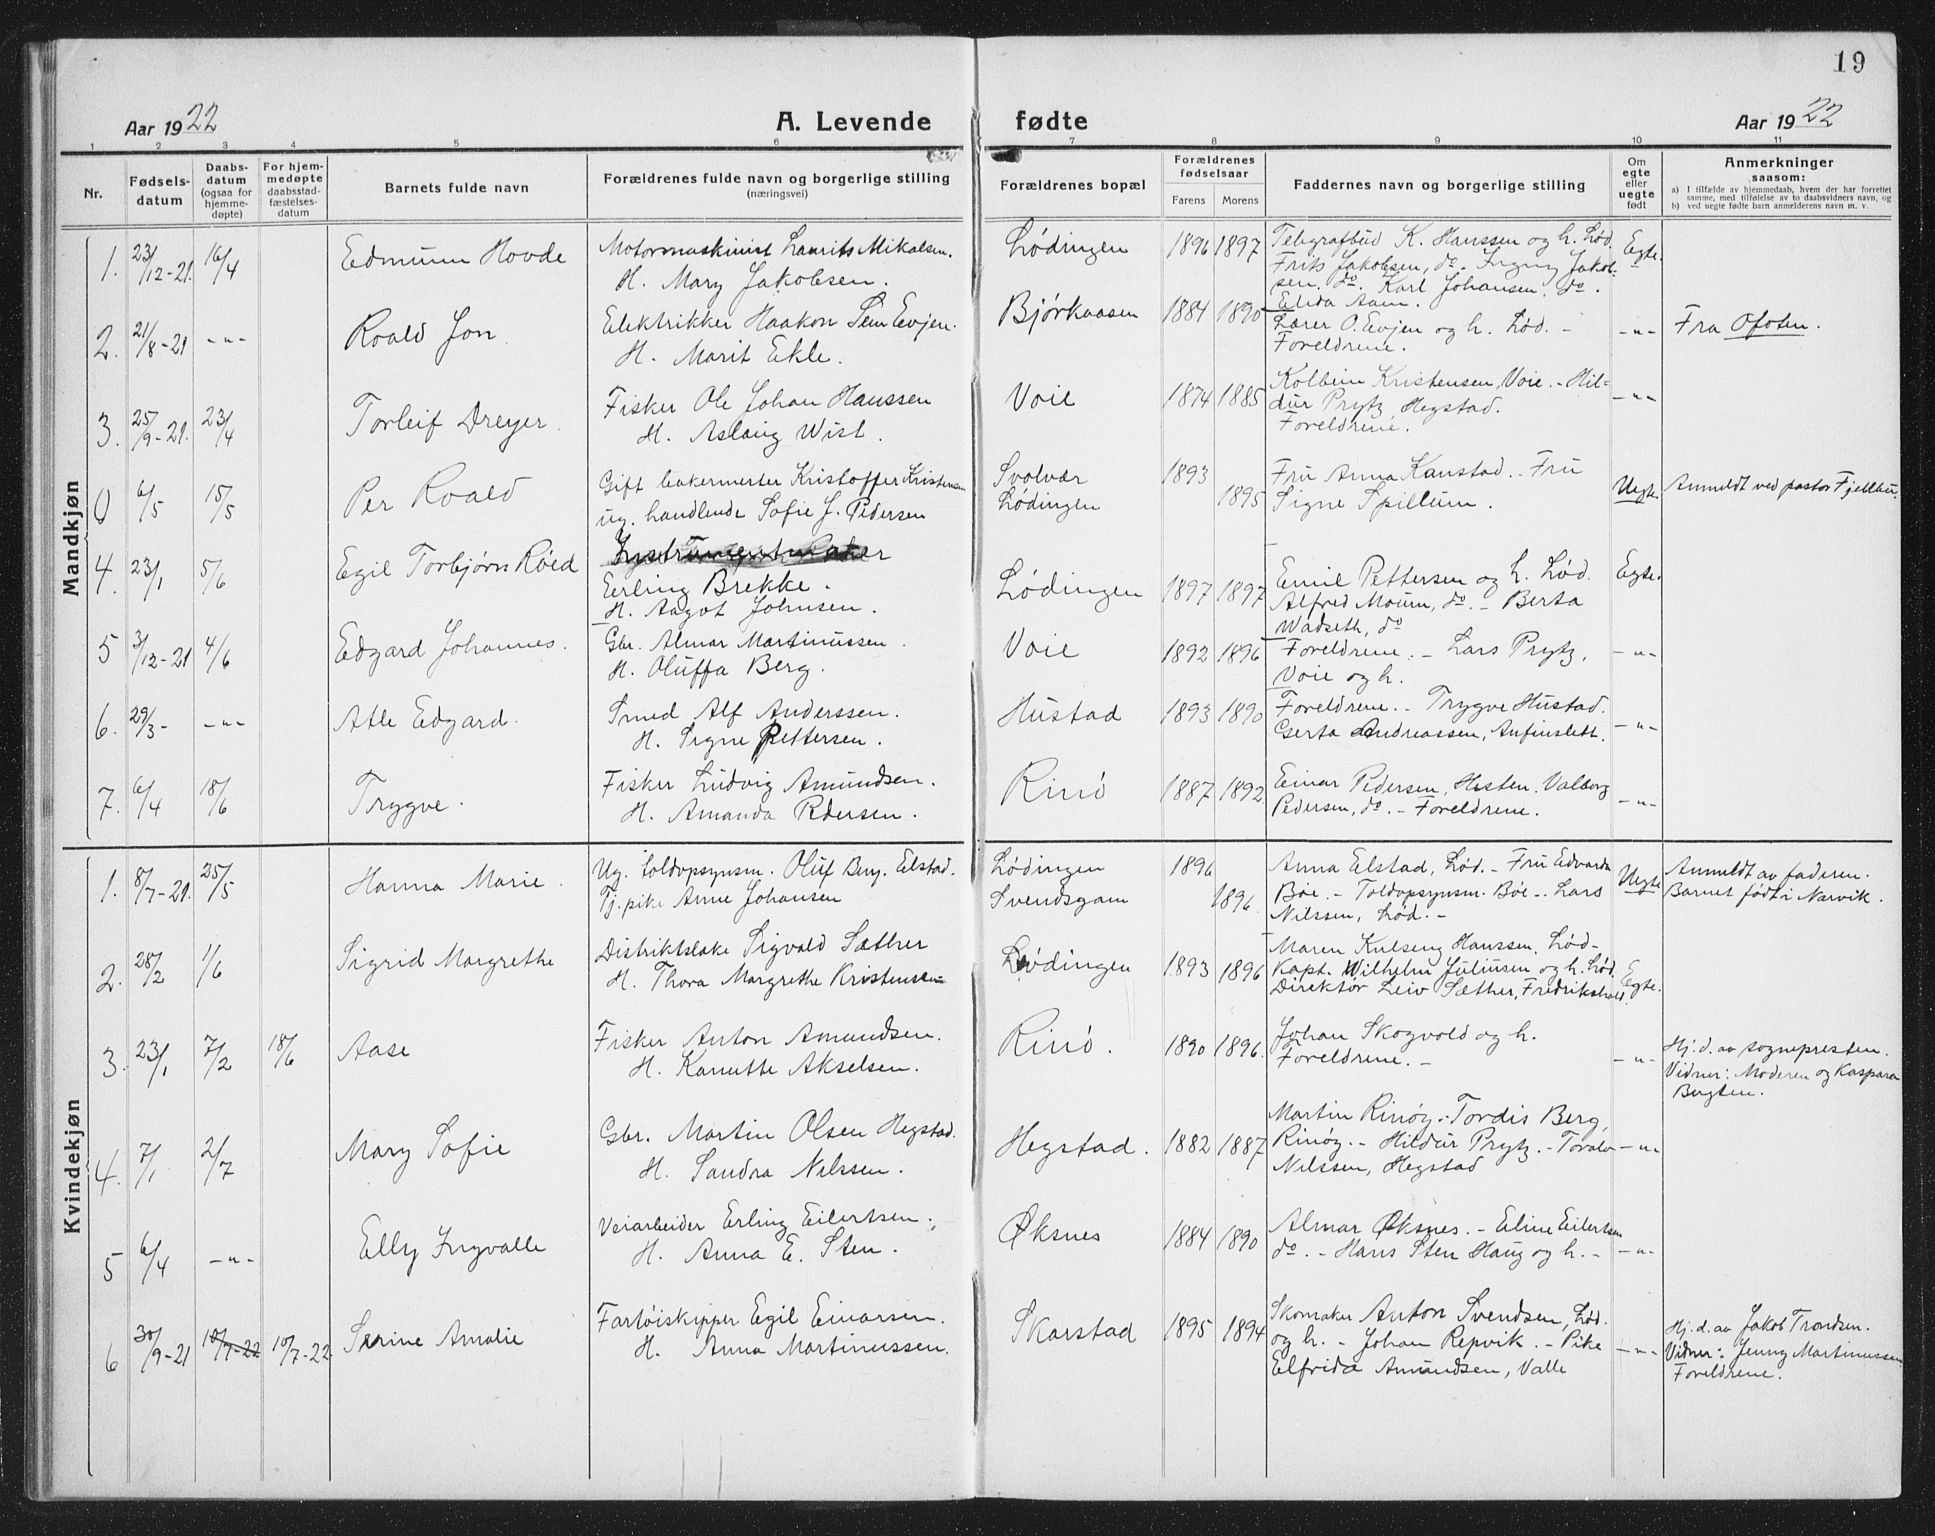 19
Aar 1922
A. Levende fødte
Aar 1922
1 2 3 4 5 6 7 8 9 10 11
Nr.
Fødsels-
datum
Daabs-
datum
(ogsaa for
hjemme-
døpte)
For hjem-
medøpte
daabsstad-
fæstelses-
datum
Barnets fulde navn
Forældrenes fulde navn og borgerlige stilling
(næringsvei)
Forældrenes bopæl
Forældrenes
fødselsaar
Farens Morens
Faddernes navn og borgerlige stilling
Om
egte
eller
uegte
født
Anmerkninger
saasom:
a) I tilfælde av hjemmedaab, hvem der har forrettet
samme, med tilføielse av to daabsvidners navn, og
b) ved uegte fødte barn anmelderens navn m. v.
Mandkjøn
1. 23/12-21. 16/4 Edmunn Hovde
Motormaskinist Laurits Mikalsen.
H. Mary Jakobsen.
Lødingen 1896 1897
Telegrafbud K. Hanssen og h. Lød.
Frits Jakobsen, do. Ingny Jakob-
sen. do. Karl Johansen. do.
Elida Aam.
Egte.
2. 21/8-21 -"- Roald Jon
Elektrikker Haakon Sem Evjen.
H. Marit Ekle.
Bjørkaasen 1884 1890
Lærer O. Evjen og h. Lød. -
Foreldrene.
-"- Fra Ofoten.
3. 25/9-21. 23/4 Torleif Dreyer
Fisker Ole Johan Hanssen
H. Aslaug Wist.
Voie 1874 1885
Kolbein Kristensen, Voie. - Hil-
dur Prytz, Hegstad.
Foreldrene.
-"-
0 6/5 15/5 Per Roald
Gift bakermester Kristoffer Kristensen
ug. handlende Sofie J. Pedersen
Svolvær 1893
Lødingen 1895
Fru Anna Kanstad. - Fru
Signe Spillum.
Uegte. Anmeldt ved pastor Fjellbu.
4. 23/1 5/6 Egil Torbjørn Røed
Instrumentmaker
Erling Brekke.
H. Aagot Johnsen.
Lødingen 1897 1897
Emil Pettersen og h. Lød.
Alfred Moum, do. - Berta
Wadseth, do
Egte.
5 3/12-21 4/6 Edgard Johannes.
Gbr. Almar Martinussen.
H. Oluffa Berg.
Voie 1892 1896
Foreldrene. - Lars Prytz,
Voie og h.
-"-
6. 29/3- -"- Atle Edgard.
Smed Alf Anderssen.
H. Signe Pettersen.
Hustad 1893 1890
Foreldrene. - Trygve Hustad.
Gerta Andreassen, Anfinslett.
-"-
7. 6/4 18/6 Trygve.
Fisker Ludvig Amundsen.
H. Amanda Pedersen.
Rinø 1887 1892
Einar Pedersen, Hesten. Valborg
Pedersen, do. - Foreldrene.
-"-
Kvindekjøn
1. 8/7-21. 25/5 Hanna Marie.
Ug. toldopsynsm. Oluf Benj. Elstad.
Tj. pike Anne Johansen
Lødingen 1896
Svendsgam 1896.
Anna Elstad, Lød. - Fru Edvarda
Bøe. - Toldopsynsm. Bøe -. Lars
Nilssen, Lød. -
Uegte Anmeldt av faderen.
Barnet født i Narvik.
2. 28/2 1/6 Sigrid Margrethe
Distriktslæke Sigvald Sæther
H. Thora Margrethe Kristensen
Lødingen 1893 1896
Maren Kulseng Hanssen, Lød-
Kapt. Wilhelm Juliusen og h. Lød.
Direktør Leiv Sæther, Fredrikshald.
Egte.
3. 23/1 7/2 18/6 Aase
Fisker Anton Amundsen.
H. Kanutte Akselsen.
Rinø. 1890 1896.
Johan Skogvold og h.
Foreldrene. -
-"- Hj. d. av sognepresten.
Vidner: Moderen og Kaspara
Bugten.
4. 7/1 2/7 Mary Sofie
Gbr. Martin Olsen Hegstad.
H. Sandra Nilssen.
Hegstad. 1882 1887
Martin Rinøy. - Tordis Berg,
Rinøy. - Hildur Prytz. - Toralv
Nilssen, Hegstad
-"-
5 6/4 -"- Elly Ingvalle
Veiarbeider Erling Eilertsen.
H. Anna E. Sten.
Øksnes 1884 1890
Almar Øksnes. - Eline Eilertsen
do. - Hans Sten Haug og h. -
-"-
6 30/9-21 10/7-22 10/7-22 Serine Amalie
Fartøiskipper Egil Einarsen.
H. Anna Martinussen.
Skarstad 1895 1894
Skomaker Anton Svendsen, Lød.
og h. - Johan Repvik. - Pike
Elfrida Amundsen, Valle
-"- Hj. d. av Jakob Trondsen.
Vidner: Jenny Martinussen
Foreldrene.